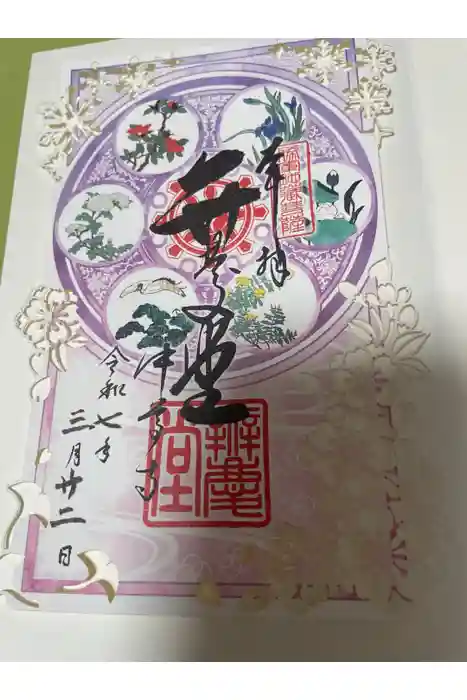 奉拝
弁慶堂
中尊寺
令和七年
三月廿二日
辨慶堂